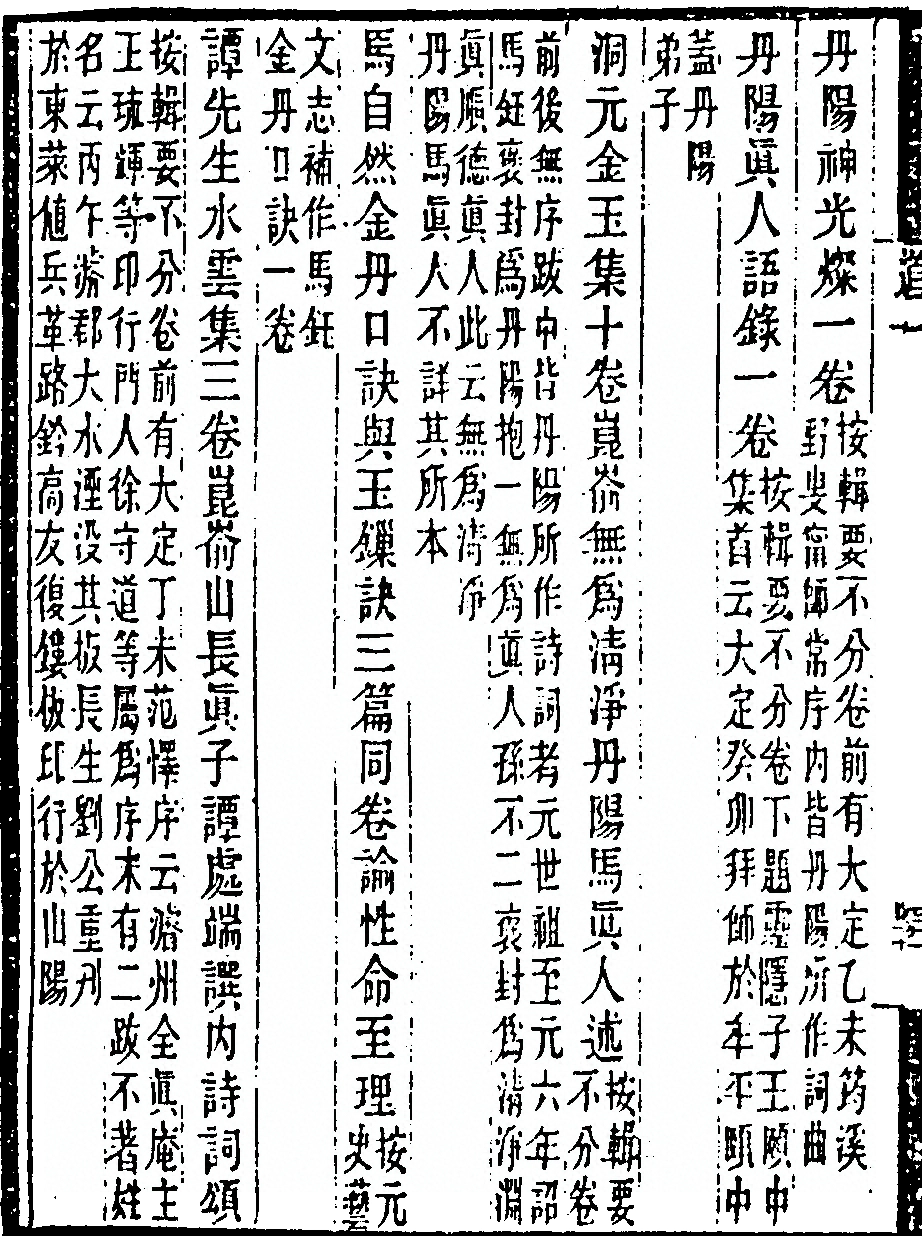 丹陽神光燦一卷按輯要不分卷前有大定乙未筠溪
野叟甯師常序內皆丹陽所作詞曲
丹陽眞人語錄一卷按輯要不分卷下題靈隱子王頤中
集首云大定癸卯拜師於牟平頤中
蓋丹陽
弟子
洞元金玉集十卷崑崙無爲淸淨丹陽馬眞人述按輯要
不分卷
前後無序跋中皆丹陽所作詩詞者元世祖至元六年詔
馬鈺襃封爲丹陽抱一無爲眞人孫不二襃封爲淸淨淵
眞順德眞人此云無爲淸淨
丹陽馬眞人不詳其所本
馬自然金丹口訣與玉鏁訣三篇同卷論性命至理按元
史藝
文志補作馬鈺
金丹口訣一卷
譚先生水雲集三卷崑崙山長眞子譚處端譔內詩詞頌
按輯要不分卷前有大定丁未范懌序云濬州全眞庵主
王琉輝等印行門人徐守道等屬爲序末有二跋不著姓
名云丙午濬郡大水湮没其板長生劉公重刋
於東萊値兵革路鈐高友復鏤板印行於山陽